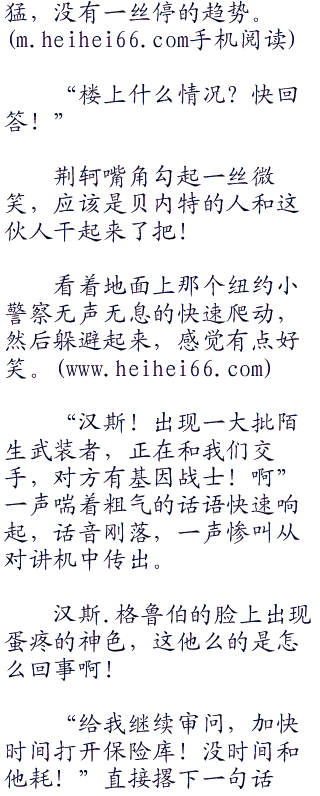 猛，没有一丝停的趋势。
(m.heihei66.com手机阅读)
“楼上什么情况？快回
答！”
荆轲嘴角勾起一丝微
笑，应该是贝内特的人和这
伙人干起来了把！
看着地面上那个纽约小
警察无声无息的快速爬动，
然后躲避起来，感觉有点好
笑。(www.heihei66.com)
“汉斯！出现一大批陌
生武装者，正在和我们交
手，对方有基因战士！啊”
一声喘着粗气的话语快速响
起，话音刚落，一声惨叫从
对讲机中传出。
汉斯.格鲁伯的脸上出现
蛋疼的神色，这他么的是怎
么回事啊！
“给我继续审问，加快
时间打开保险库！没时间和
他耗！”直接撂下一句话